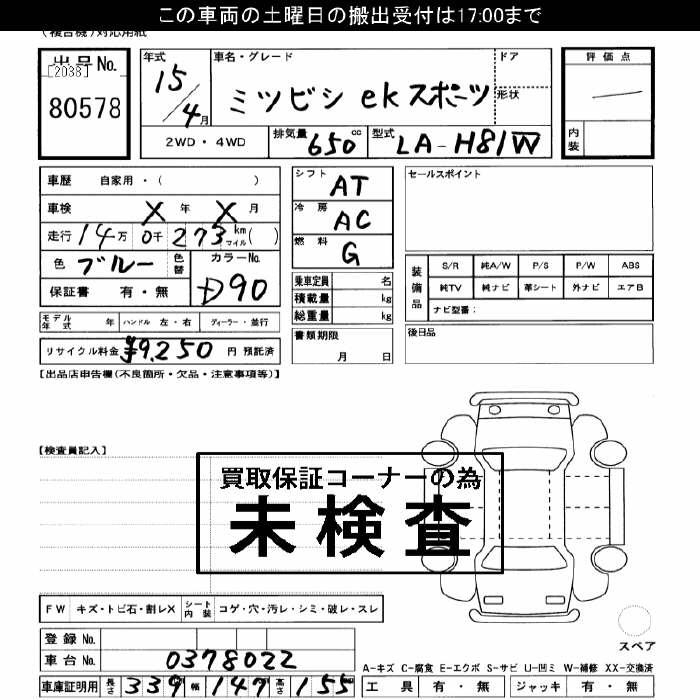 この車両の土曜日の搬出受付は17:00まで
出品No. [2038] 80578
年式 15/4月
車名・グレード ミツビシ ekスポーツ
ドア 形状
2WD・4WD 排気量 650cc 型式 LA-H81W
評価点
内装
車歴 自家用・( )
車検 X年 X月
走行 14万0千273km マイル( )
色 ブルー 色替 カラーNo. D90
保証書 有・無
シフト AT
冷房 AC
燃料 G
乗車定員 名
積載量 kg
総重量 kg
セールスポイント
装備品 S/R 純A/W P/S P/W ABS
純TV 純ナビ 革シート 外ナビ エアB
ナビ型番:
モデル年式 年 ハンドル 左・右 ディーラー・並行
書類期限 月 日
後日品
リサイクル料金 ¥9,250 円 預託済
【出品店申告欄(不良箇所・欠品・注意事項等)】
【検査員記入】
買取保証コーナーの為
未検査
FW キズ・トビ石・割レX シート内装 コゲ・穴・汚レ・シミ・破レ・スレ
スペア
登録No.
車台No. 0378022
A-キズ C-腐食 E-エクボ S-サビ U-凹ミ W-補修 XX-交換済
車庫証明用 長さ 339 幅 147 高さ 155
工具 有・無 ジャッキ 有・無